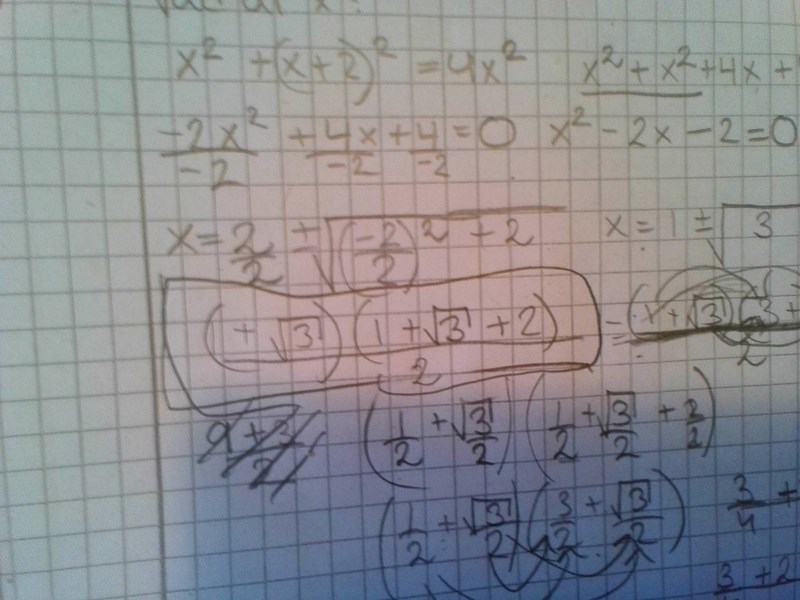 x² + (x+2)² = 4x² x² + x² + 4x +
-2x²/-2 + 4x/-2 + 4/-2 = 0 x² - 2x - 2 = 0
x = 2/2 ± √((-2/2)² + 2) x = 1 ± √3
(1 + √3)(1 + √3 + 2)/2 = (1 + √3)(3 +/2
(1/2 + √3/2)(1/2 + √3/2 + 2/2)
(1/2 + √3/2)(3/2 + √3/2) 3/4 +
3 + 2